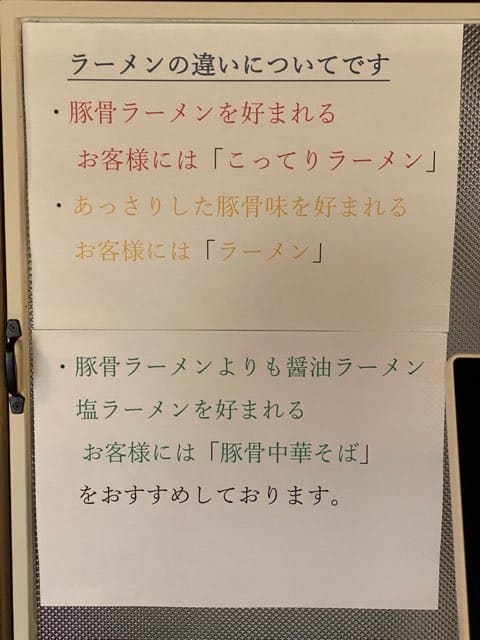 ラーメンの違いについてです
・豚骨ラーメンを好まれる
お客様には「こってりラーメン」
・あっさりした豚骨味を好まれる
お客様には「ラーメン」
・豚骨ラーメンよりも醤油ラーメン
塩ラーメンを好まれる
お客様には「豚骨中華そば」
をおすすめしております。